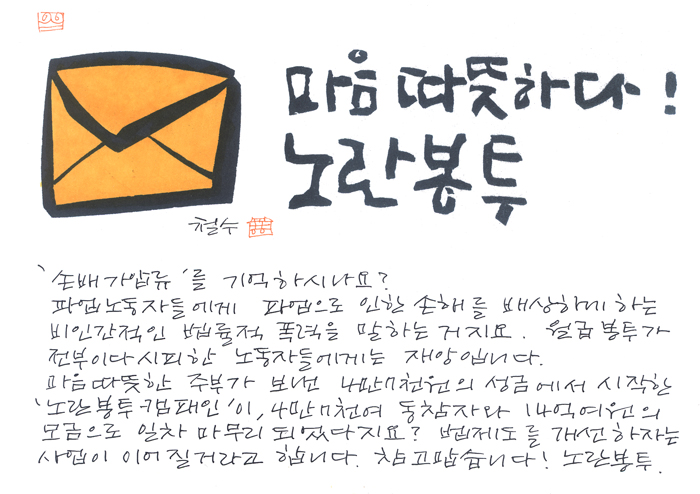 마음 따뜻하다!
노란봉투
철수
'손배가압류'를 기억하시나요?
파업노동자들에게 파업으로 인한 손해를 배상하게 하는
비인간적인 법률적 폭력을 말하는 거지요. 월급봉투가
전부이다시피한 노동자들에게는 재앙입니다.
마음따뜻한 주부가 보낸 4만7천원의 성금에서 시작한
'노란봉투캠페인'이, 4만7천여 동참자와 14억여원의
모금으로 일차 마무리 되었다지요? 법제도를 개선하자는
사업이 이어질거라고 합니다. 참 고맙습니다! 노란봉투.